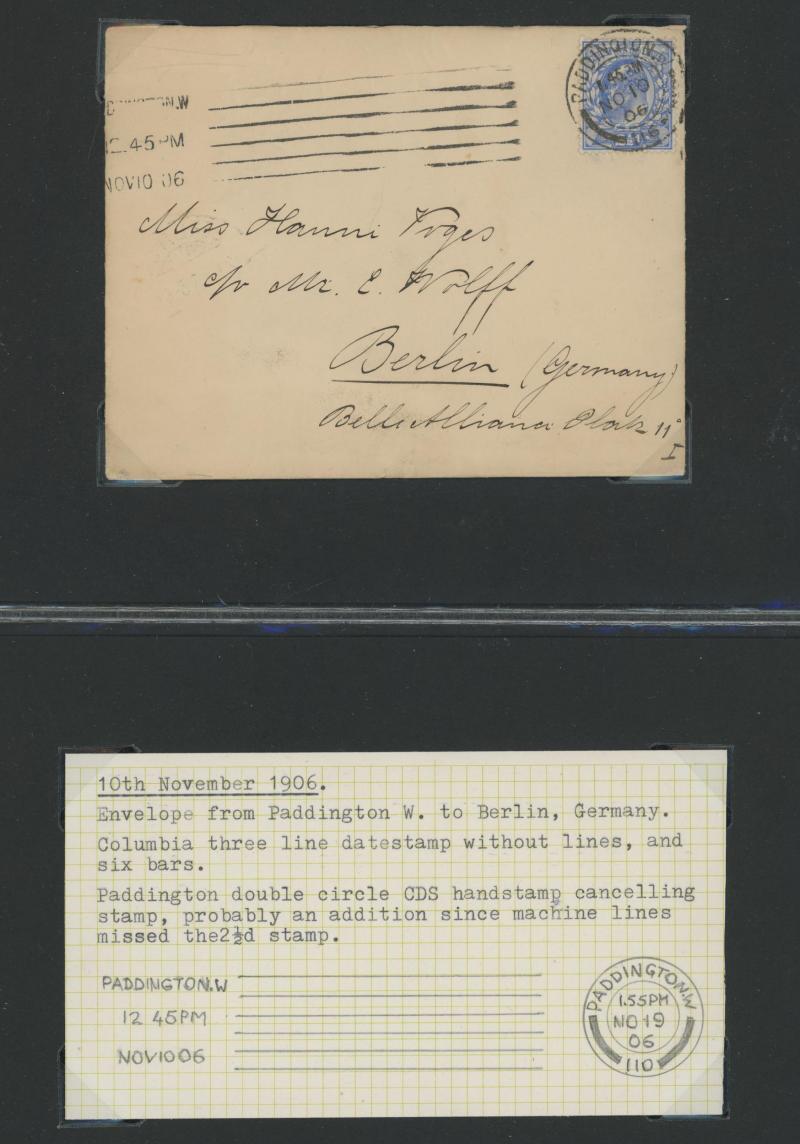 PADDINGTON.W
12.45PM
NOV10 06
PADDINGTON.
NO 10
06
Miss Hanni Voges
c/o Mr. E. Wolff
Berlin (Germany)
Belle Alliance Platz 11°
I
10th November 1906.
Envelope from Paddington W. to Berlin, Germany.
Columbia three line datestamp without lines, and
six bars.
Paddington double circle CDS handstamp cancelling
stamp, probably an addition since machine lines
missed the2½d stamp.
PADDINGTON.W
12 45PM
NOV10 06
PADDINGTON.W
1.55PM
NO 19
06
110